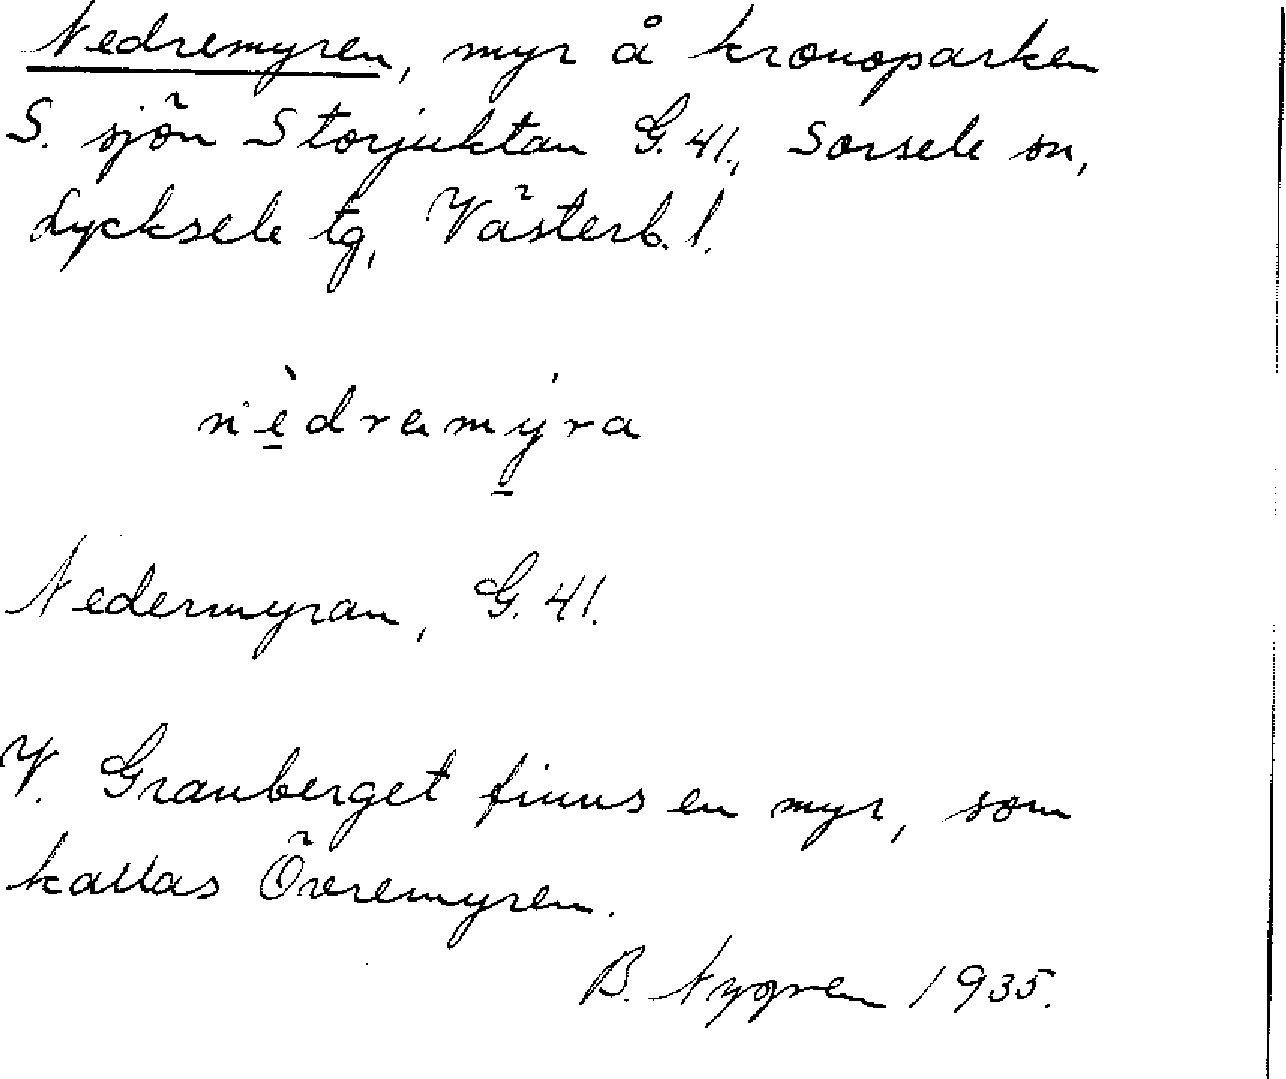 Nedremyren, myr å kronoparken
S. sjön Storjuktan G. 41., Sorsele sn,
Lycksele tg, Västerb. l.
nèdramýra
Nedermyran, G. 41.
V. Granberget finns en myr, som
kallas Övremyren.
B. Nygren 1935.